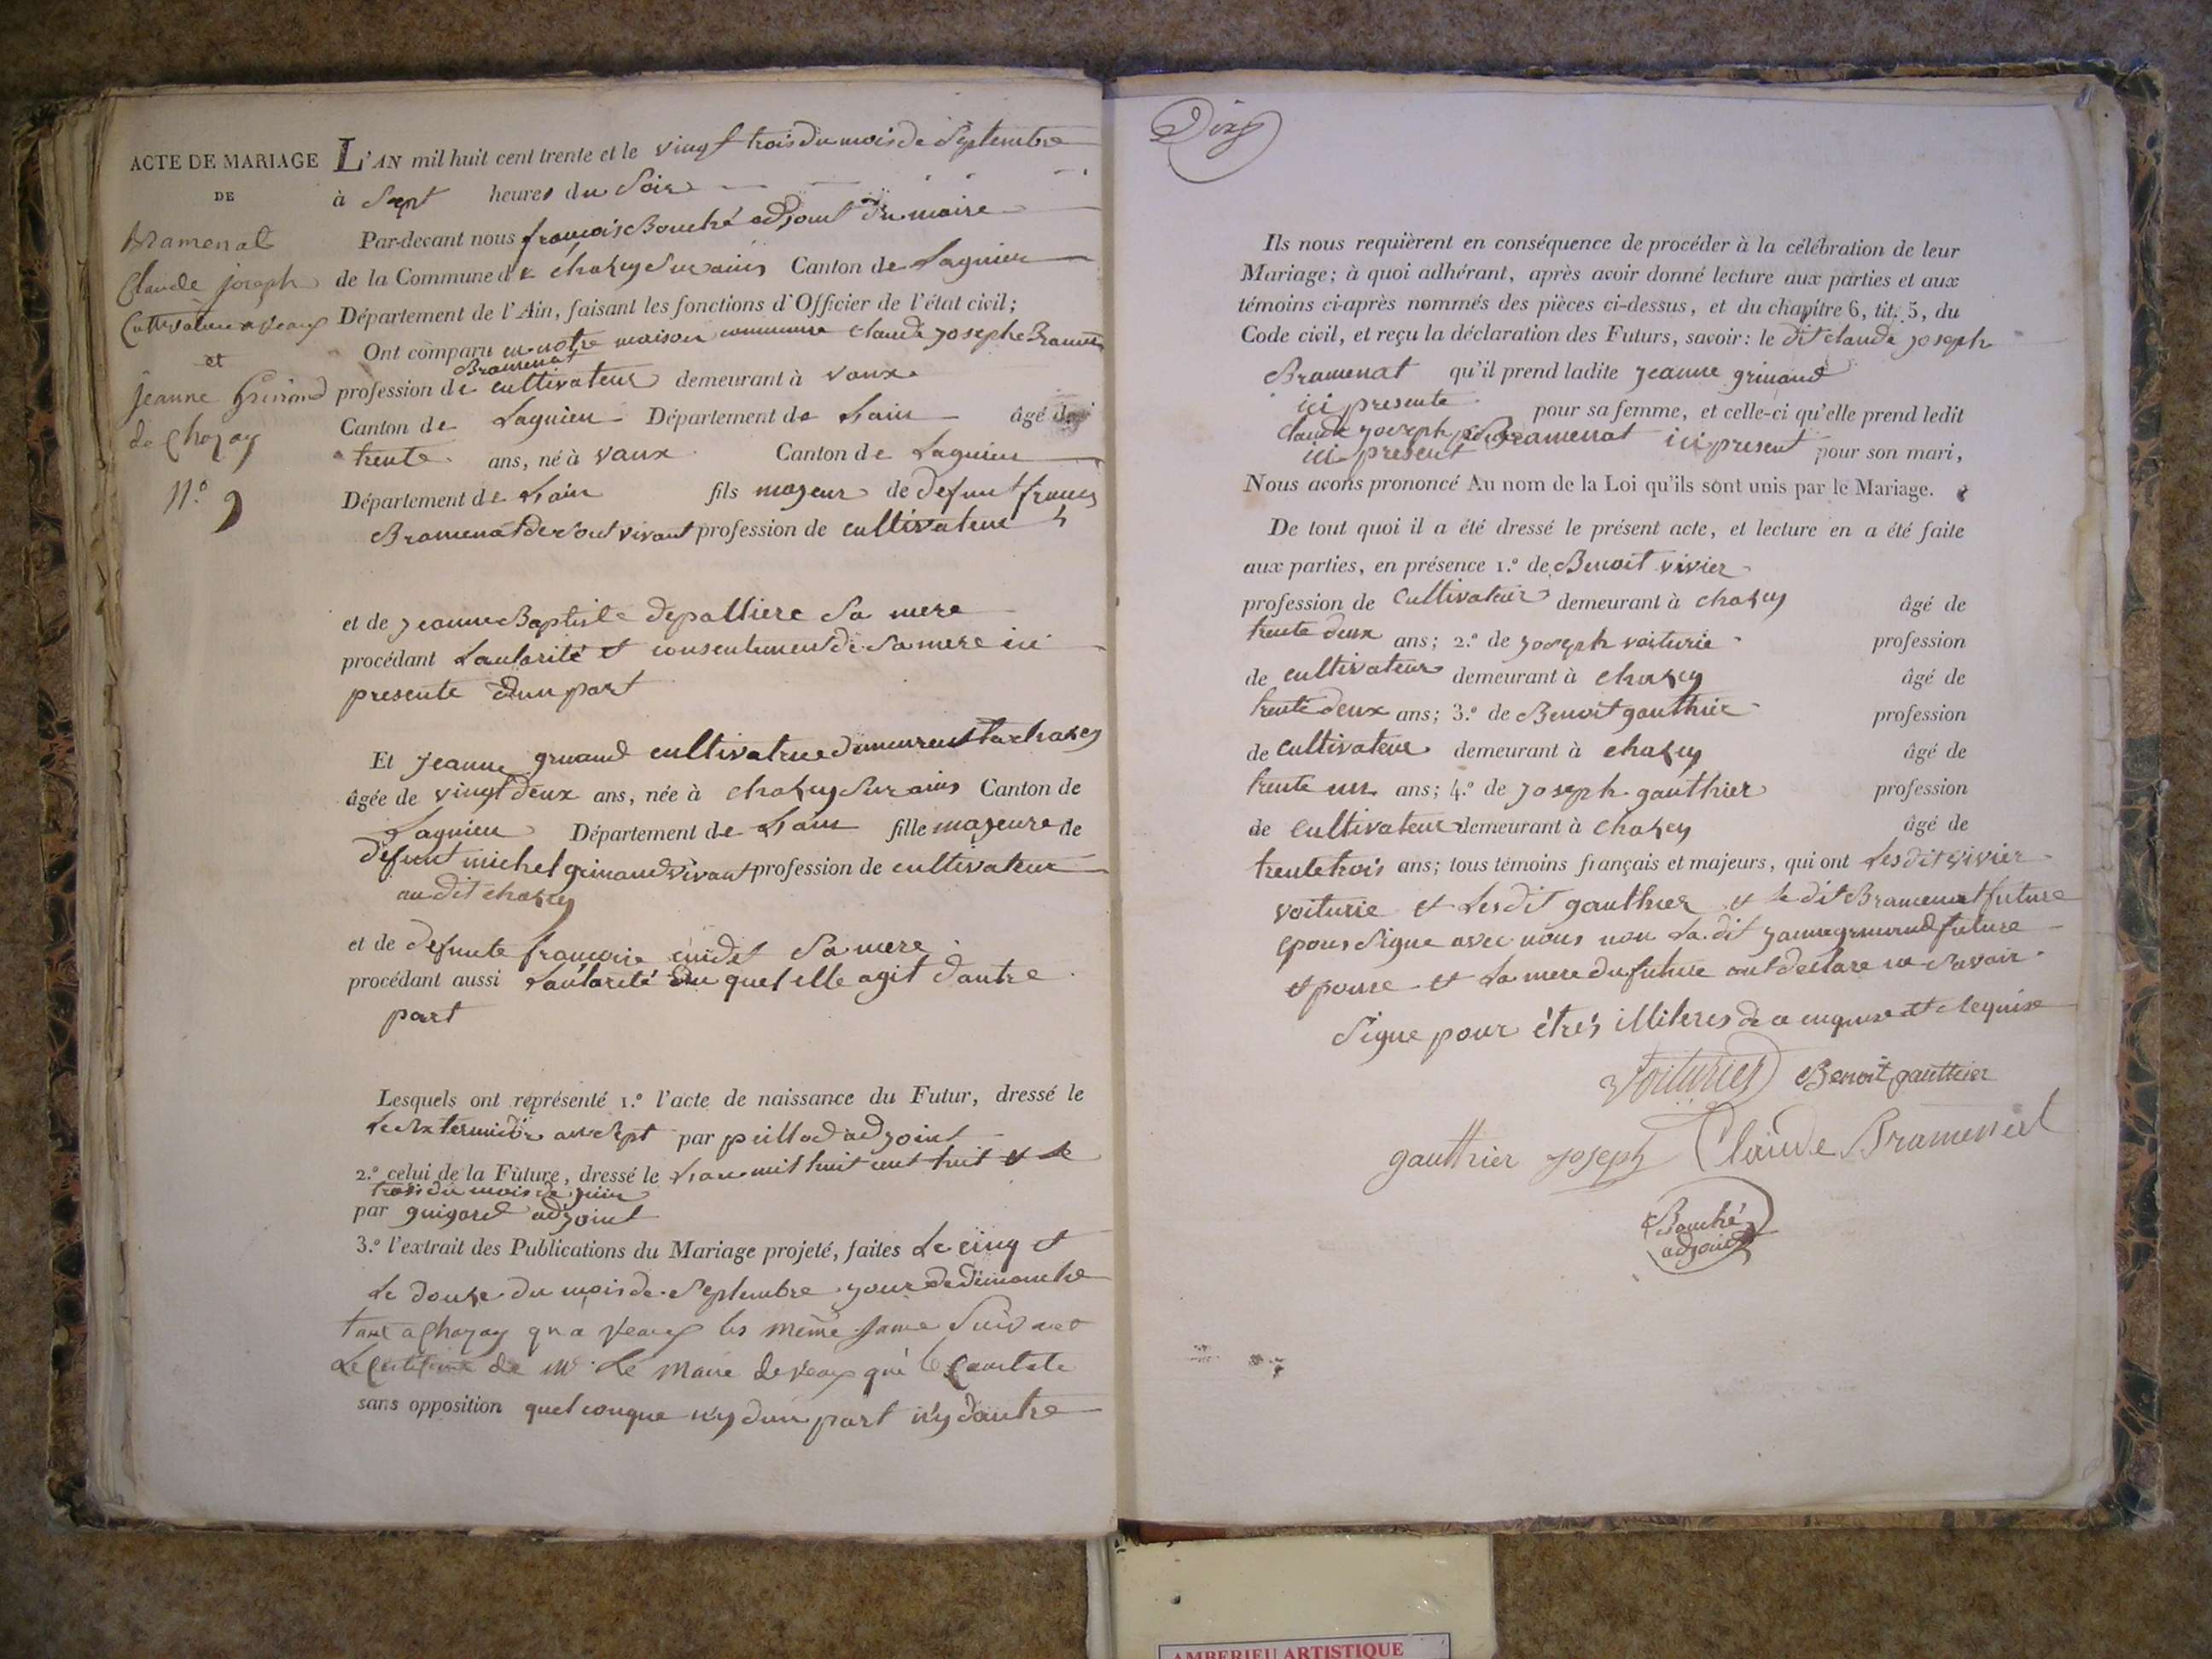 ACTE DE MARIAGE
DE
Bramenat
Claude joseph
Cultivateur a Veaux
et
jeanne Grinand
de Chazay
N.º 9
L'AN mil huit cent trente et le vingt trois du mois de Septembre
à Sept heures du Soir
Par-devant nous francois Bouché adjoint du maire
de la Commune de chazey Sur ains Canton de Lagnieu
Département de l'Ain, faisant les fonctions d'Officier de l'état civil;
Ont comparu en notre maison commune Claude Josephe Bramena
Bramenat
profession de cultivateur demeurant à vaux
Canton de Lagnieu Département de Lain âgé de
trente ans, né à vaux Canton de Lagnieu
Département de Lain fils majeur de defunt francs
Bramenat de Sont vivant profession de cultivateur
et de jeanne Baptiste depalliere Sa mere
procédant Lautorité et consentement de Sa mere ici
presente dun part
Et jeanne grinand cultivatrice demeurent a chazey
âgée de vingt deux ans, née à chazey Sur ains Canton de
Lagnieu Département de Lain fille majeure de
defunt michel grinand vivant profession de cultivateur
au dit chazey
et de defunte francoise Sa mere
procédant aussi Lautorité du quel elle agit dautre
part
Lesquels ont représenté 1.º l'acte de naissance du Futur, dressé le
Le Six termidor an Sept par peillod adjoint
2.º celui de la Future, dressé le Lan mil huit cent huit et le
trois du mois de juin
par guigard adjoint
3.º l'extrait des Publications du Mariage projeté, faites Le cinq et
Le douze du mois de Septembre jour de dimanche
tant a Chazay qu'a Veaux les même jame Suivant
Le Certificat de Mr. Le Maire de Veaux qui le Constate
sans opposition quelconque n'y dun part n'y dautre
Dix
Ils nous requièrent en conséquence de procéder à la célébration de leur
Mariage; à quoi adhérant, après avoir donné lecture aux parties et aux
témoins ci-après nommés des pièces ci-dessus, et du chapitre 6, tit. 5, du
Code civil, et reçu la déclaration des Futurs, savoir: le dit claude joseph
Bramenat qu'il prend ladite jeanne grinand
ici presente pour sa femme, et celle-ci qu'elle prend ledit
claude joseph Bramenat ici present
ici present pour son mari,
Nous avons prononcé Au nom de la Loi qu'ils sont unis par le Mariage.
De tout quoi il a été dressé le présent acte, et lecture en a été faite
aux parties, en présence 1.º de Benoit vivier
profession de Cultivateur demeurant à chazey âgé de
trente deux ans; 2.º de joseph voiturie profession
de cultivateur demeurant à chazey âgé de
trente deux ans; 3.º de Benoit gauthier profession
de cultivateur demeurant à chazey âgé de
trente un ans; 4.º de joseph gauthier profession
de cultivateur demeurant à chazey âgé de
trente trois ans; tous témoins français et majeurs, qui ont Les dit vivier
voiturie et Les dit gauthier et le dit Bramenat future
epous Signe avec nous non La dit jeanne grinand future
epouse et La mere du future ont declare ne Savoir
Signe pour étrés illiteres de a enquise et Requise
Voiturier Benoît gauthier
gauthier joseph Claude Bramenat
Bouché
adjoint
AMBERIEU ARTISTIQUE